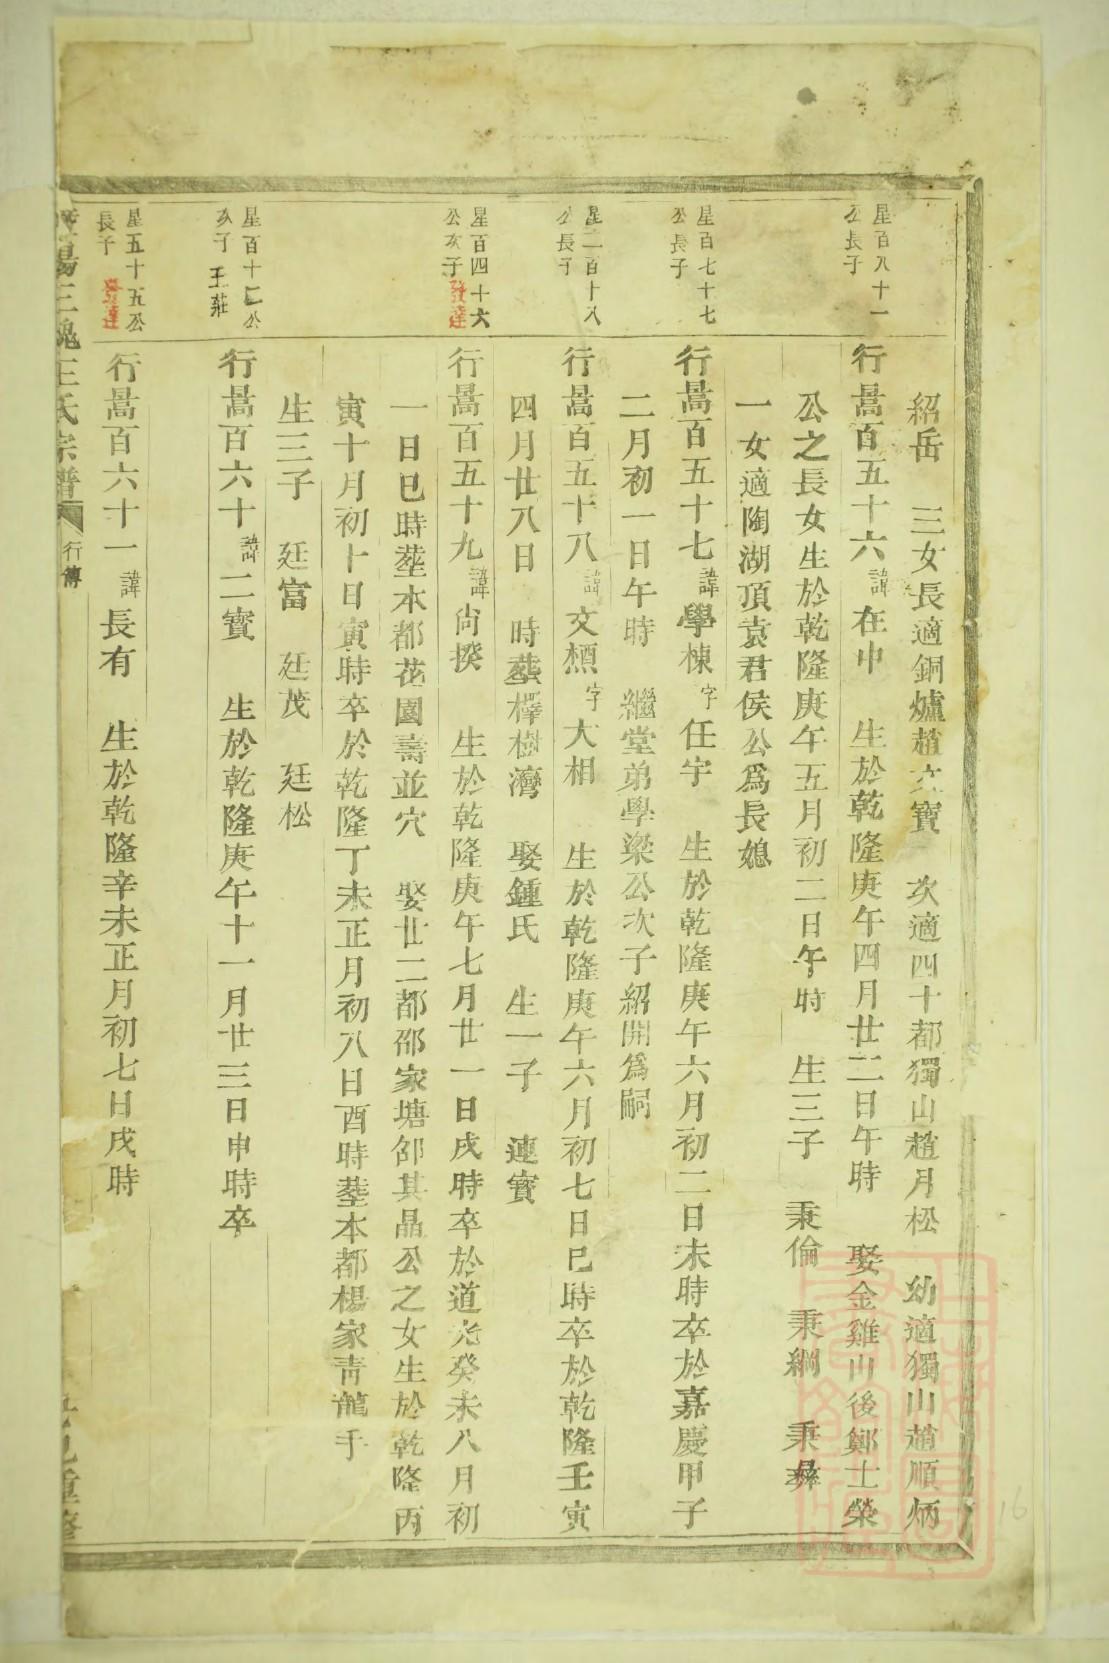 星百八十一
公長子
星百七十七
公長子
星二百十八
公長子
星百四十六
公次子 發達
星百十二公
次子 王莊
星五十五公
長子 發達
紹岳 三女長適銅爐趙文寶 次適四十都獨山趙月松 幼適獨山趙順炳
行暠百五十六諱在中 生於乾隆庚午四月廿二日午時 娶金雞山後鄭士榮
公之長女生於乾隆庚午五月初二日午時 生三子 秉倫 秉綱 秉彝
一女適陶湖頂袁君侯公爲長媳
行暠百五十七諱學棟字任宇 生於乾隆庚午六月初二日未時卒於嘉慶甲子
二月初一日午時 繼堂弟學梁公次子紹開爲嗣
行暠百五十八諱文櫄字大相 生於乾隆庚午六月初七日巳時卒於乾隆壬寅
四月廿八日 時塟檡樹灣 娶鍾氏 生一子 連寶
行暠百五十九諱尚揆 生於乾隆庚午七月廿一日戌時卒於道光癸未八月初
一日巳時塟本都花園壽並穴 娶廿二都邵家塘邵其晶公之女生於乾隆丙
寅十月初十日寅時卒於乾隆丁未正月初八日酉時塟本都楊家青龍手
生三子 廷富 廷茂 廷松
行暠百六十諱二寶 生於乾隆庚午十一月廿三日申時卒
行暠百六十一諱長有 生於乾隆辛未正月初七日戌時
暨陽三槐王氏宗譜 行傳 己巳重修
16